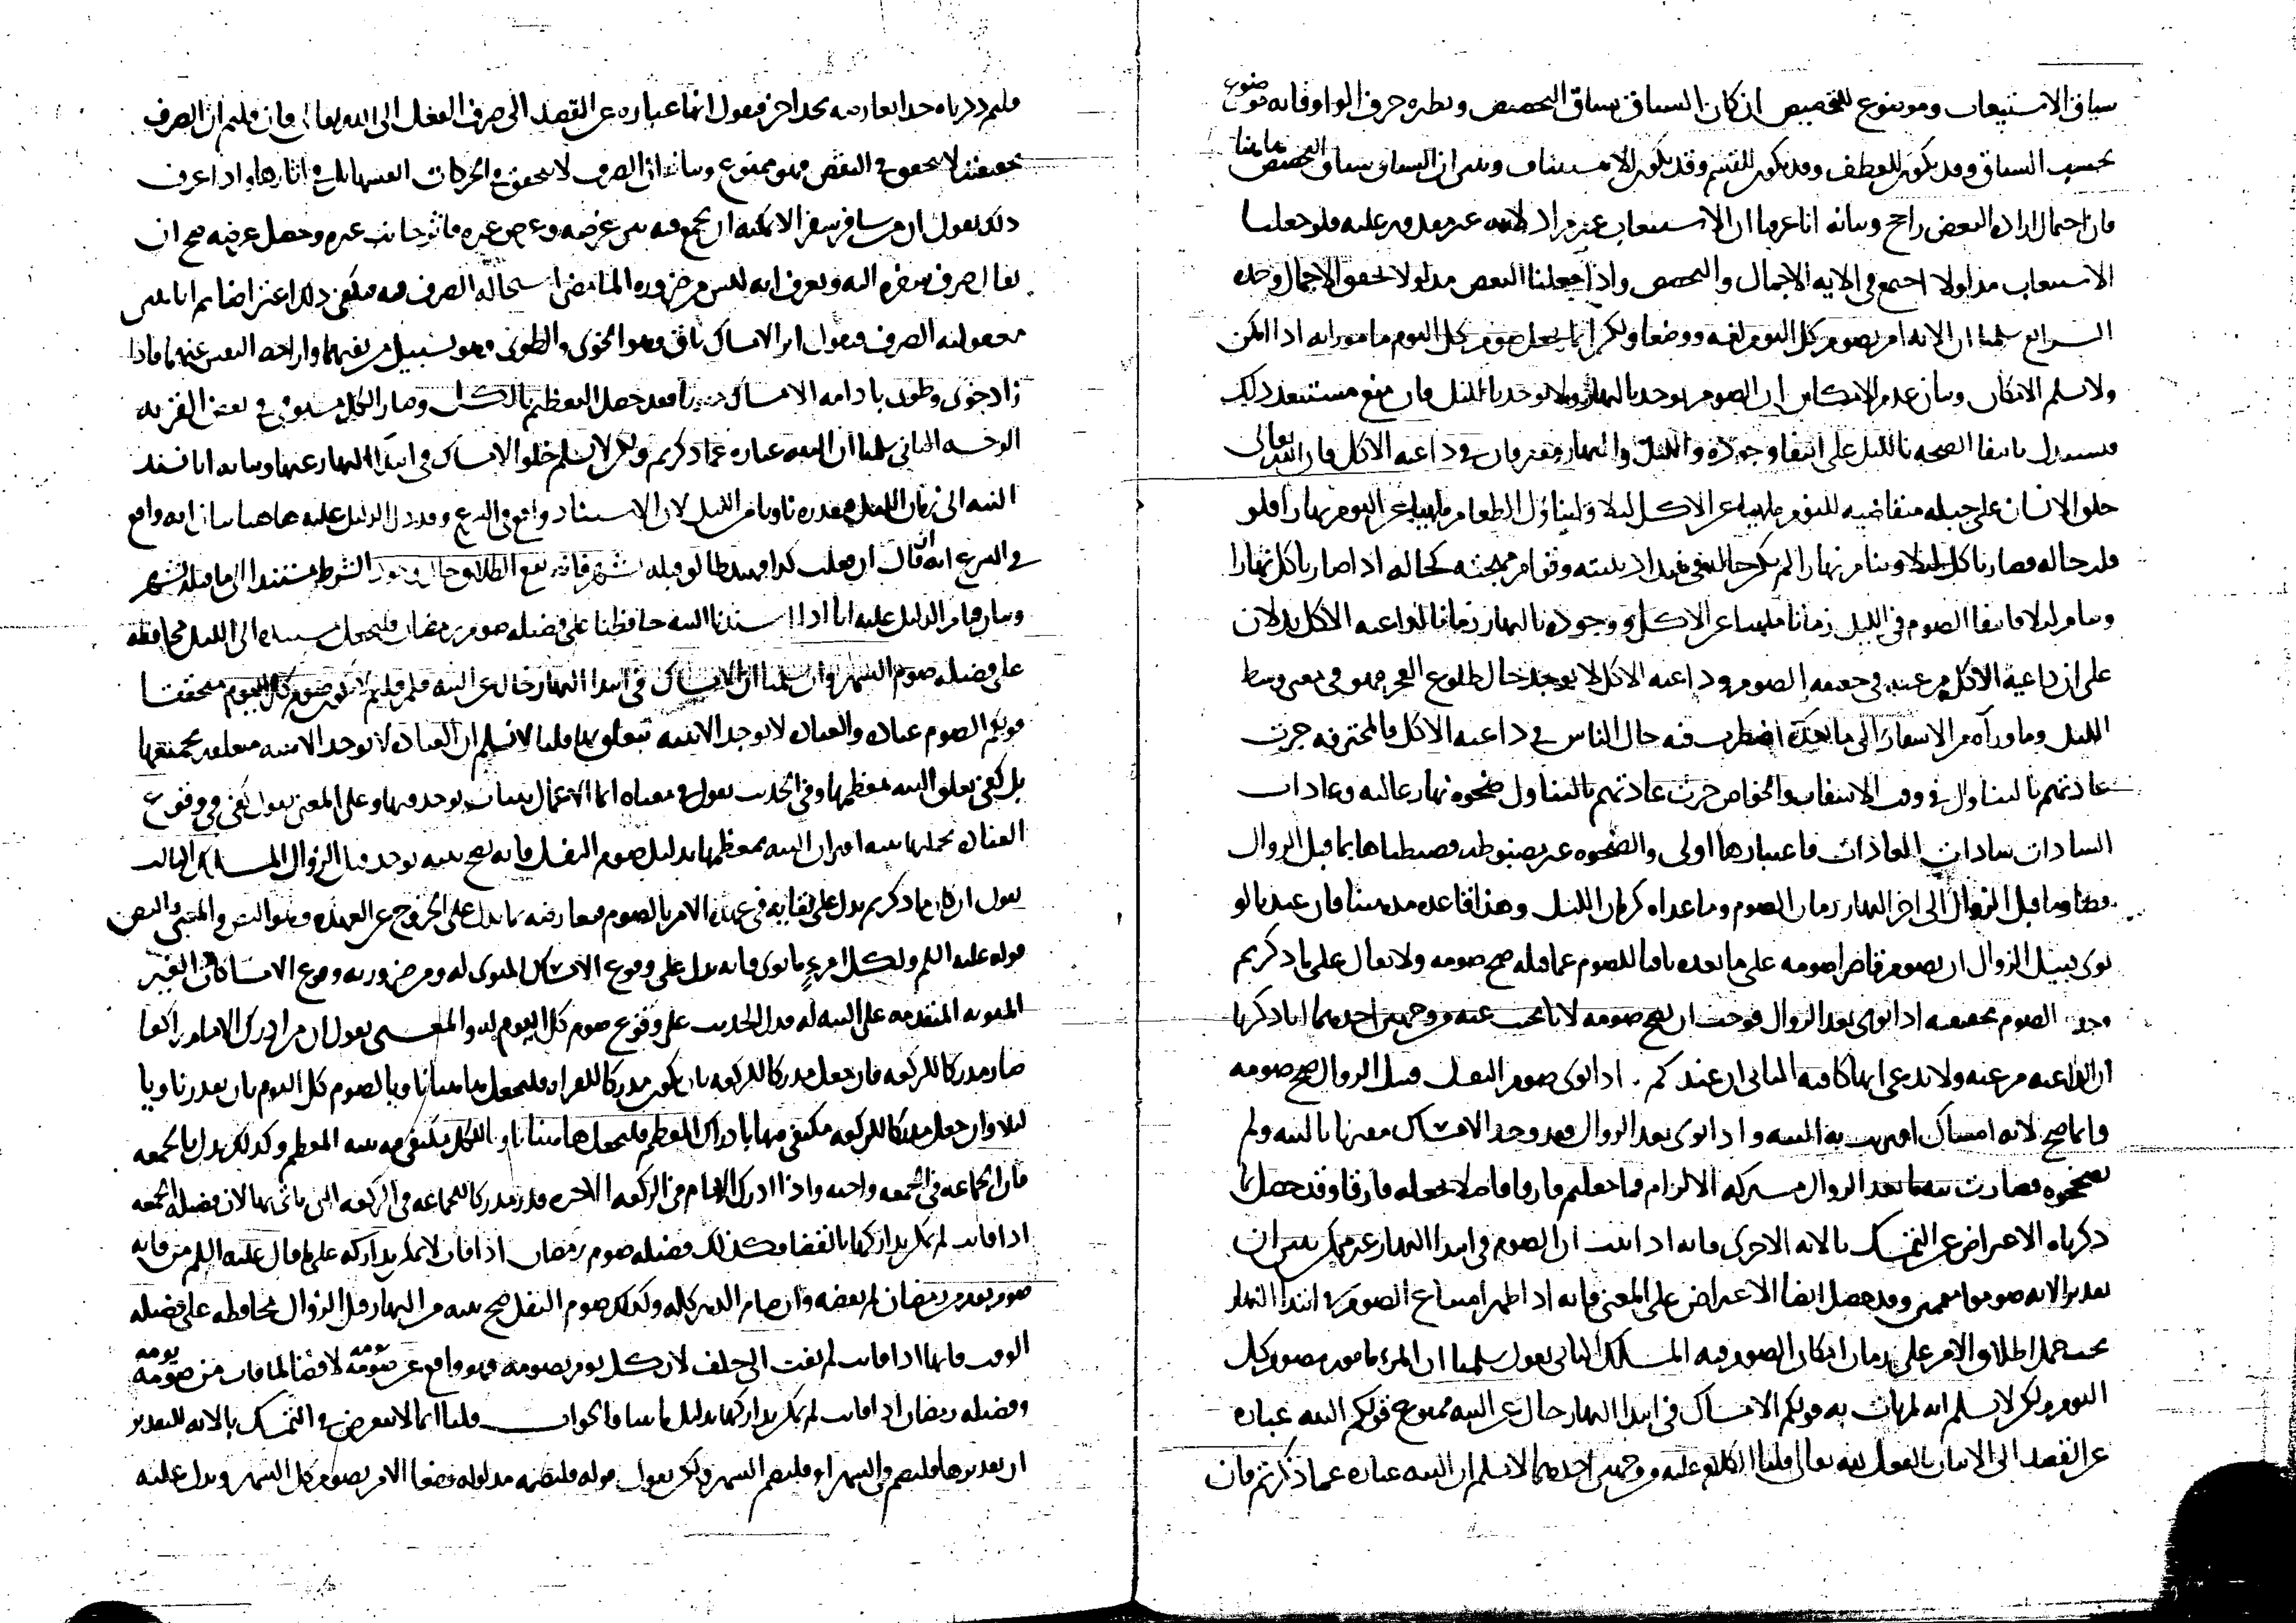 سياق الاستيعاب وموضوع للتخصيص ان كان السياق سياق التخصيص ونظيره حرف الواو فانه موضوع
بحسب السياق وقد يكون للعطف وقد يكون للقسم وقد يكون للاستيناف وبين ان السياق سياق التخصيص هاهنا
فان احتمال ارادة البعض راجح وبيانه انا عرفنا ان الاستيعاب غير مراد لانه غير مقدور عليه فلو جعلنا
الاستيعاب مدلولا اجتمع في الآية الاجمال والتخصيص واذا جعلنا البعض مدلولا تحقق الاجمال وحده
سلمنا ان الآية امر بصوم كل اليوم لغة ووضعا ولكن انما يجعل صوم كل اليوم مامورا به اذا امكن
ولا نسلم الامكان وبيان عدم الامكان ان الصوم يوجد بالنهار ولا يوجد بالليل فان منع مستبعد ذلك
بانتفا الصحة بالليل على انتفا وجوده والليل والنهار يفترقان في داعية الاكل فان الله تعالى
خلق الانسان على جبلة متقاضية للنوم ملهية عن الاكل ليلا ولتناول الطعام ملهية عن النوم نهارا فلو
قدر حاله فصار ياكل ليلا وينام نهارا لم يكن حاله
وينام ليلا فانتفا الصوم في الليل زمانا ملهيا عن الاكل ووجوده بالنهار زمانا لداعية الاكل يدلان
على ان داعية الاكل مرعية في حقيقة الصوم وداعية الاكل لا توجد حال طلوع الفجر فهو في معنى وسط
الليل وما وراه من الاسفار الى ما بعده اضطرب فيه حال الناس في داعية الاكل فالمحترفة جرت
عادتهم بالتناول في وقت الاسفار والخواص جرت عادتهم بالتناول ضحوة نهار عالية وعادات
السادات سادات العادات فاعتبارها اولى والضحوة غير مضبوطة فضبطناها بما قبل الزوال
وما قبل الزوال الى اخر النهار زمان الصوم وما عداه كزمان الليل وهذا قاعدة مذهبنا فان عندنا لو
نوى قبيل الزوال ان يصوم قاصرا صومه على ما بعده نافيا للصوم عما قبله صح صومه ولا يقال على ما ذكرتم
وجد الصوم بحقيقته اذا نوى بعد الزوال فوجب ان يصح صومه لانا نجيب عنه من وجهين احدهما انا ذكرنا
ان الداعية مرعية ولا ندعي انها كافية الثاني ان عندكم اذا نوى صوم النفل قبل الزوال صح صومه
وانما صح لانه امساك اقترنت به النية واذا نوى بعد الزوال فقد وجد الامساك مقترنا بالنية ولم
تصححوه فصارت نية ما بعد الزوال مشتركة الالزام فما جعلتم فارقا فاصلا نجعله فارقا وقد حصل بما
ذكرناه الاعتراض عن التمسك بالآية الاخرى فانه اذا ثبت ان الصوم في ابتدا النهار غير ممكن تبين ان
تقدير الآية صوموا ممكنين وقد حصل ايضا الاعتراض على المعنى فانه اذا ظهر امتناع الصوم في ابتدا النهار
يجب حمل اطلاق الامر على زمان امكان الصوم فيه المسلك الثاني نقول سلمنا ان المرء مامور بصوم كل
اليوم ولكن لا نسلم انه لم يات به قولكم الامساك في ابتدا النهار خال عن النية ممنوع قولكم النية عبارة
عن القصد الى الاتيان بالفعل لله تعالى قلنا الكلام عليه من وجهين احدهما لا نسلم ان النية عبارة عما ذكرتم فان
قلتم ذكرناه حدا نعارضه بحد اخر فنقول انها عبارة عن القصد الى صرف الفعل الى الله تعالى فان قلتم ان الصرف
حقيقته لا تتحقق في البعض فهو ممنوع وبيانه ان الصرف لا يتحقق في الحركات انفسها بل في اثارها واذا عرف
ذلك نقول ان من سافر سفرا لا يمكنه ان يجمع فيه بين غرضه وغرض غيره فاثر جانب غيره وحصل غرضه صح ان
يقال صرف سفره اليه وبعرف انه ليس من ضرورة الماضي استحالة الصرف فيه فيكفي ذلك اعتراضا ثم انا نبين
معقولية الصرف فنقول اثر الامساك باق وهو الخوى والطوى وهو بسبيل من
زاد خوى وطوى بادامة الامساك
الوجه الثاني سلمنا ان النية عبارة عما ذكرتم ولكن لا نسلم خلو الامساك في ابتدا النهار عنها وبيانه انا نسند
النية الى زمان الليل فنقدره ناويا من الليل لان الاستناد واقع في الشرع وقد دل الدليل عليه هاهنا بيان انه واقع
في الشرع انه ان قال ان فعلت كذا فانت طالق قبله بشهر فانه يقع الطلاق حال وجود الشرط مستندا الى ما قبله بشهر
وبيان قيام الدليل عليه انا اذا اسندنا النية حافظنا على فضيلة صوم رمضان فلتجعل مستندة الى الليل محافظة
على فضيلة صوم الشهر وان سلمنا ان الامساك في ابتدا النهار خال عن النية فلم قلتم لا يكون صوم كل اليوم متحققا
قولكم الصوم عبادة والعبادة لا توجد الا بنية تتعلق بها قلنا لا نسلم ان العبادة لا توجد الا بنية متعلقة بجميعها
بل يكفي تعلق النية بمعظمها وفي الحديث نقول في معناه انما الاعمال بنيات توجد فيها وعلى المعنى نقول يكفي في وقوع
العبادة بجملتها نية اقتران النية بمعظمها بدليل صوم النفل فانه يصح بنية توجد قبل الزوال المسلك الثالث
نقول ان كان ما ذكرتم يدل على بقائه في عهدة الامر بالصوم فمعارضه ما يدل على الخروج عن العهدة وهو النص والمعنى والنص
قوله عليه السلم ولكل امرئ ما نوى فانه يدل على وقوع الامساك المنوي له ومن ضرورته وقوع الامساكات الغير
المنوية المتقدمة على النية له فدل الحديث على وقوع صوم كل اليوم له والمعنى نقول ان من ادرك الامام راكعا
صار مدركا للركعة فان جعل مدركا للركعة بان يكون مدركا للقراة فليجعل هاهنا ناويا لصوم كل اليوم بان يقدر ناويا
ليلا وان جعل مدركا للركعة مكتفى منها بادراك المعظم فلتجعل هاهنا ناويا للكل مكتفى منه بنية المعظم وكذلك يدل الجمعة
فان الجماعة في الجمعة واجبة واذا ادرك الامام في الركعة الاخيرة قدر مدركا للجماعة في الركعة التي ياتي بها لان فضيلة الجمعة
اذا فاتت لم يمكن تداركها بالقضا فكذلك فضيلة صوم رمضان اذا فات لا يمكن تداركه على ما قال عليه السلم من فاته
صوم يوم من رمضان لم يقضه وان صام الدهر كله وكذلك صوم النفل صح بنية من النهار قبل الزوال محافظة على فضيلة
الوقت فانها اذا فاتت لم يفت الى خلف لان كل يوم يصومه فهو واقع عن صومه لا قضا لما فات من صومه
وفضيلة رمضان اذا فاتت لم يمكن تداركها بدليل ما بينا والجواب قلنا انما لا نتعرض في التمسك بالآية للتقدير
ان تقديرها فليصم في الشهر او فليصم الشهر ولكن نقول قوله فليصمه مدلوله وضعا الامر بصوم كل الشهر ويدل عليه